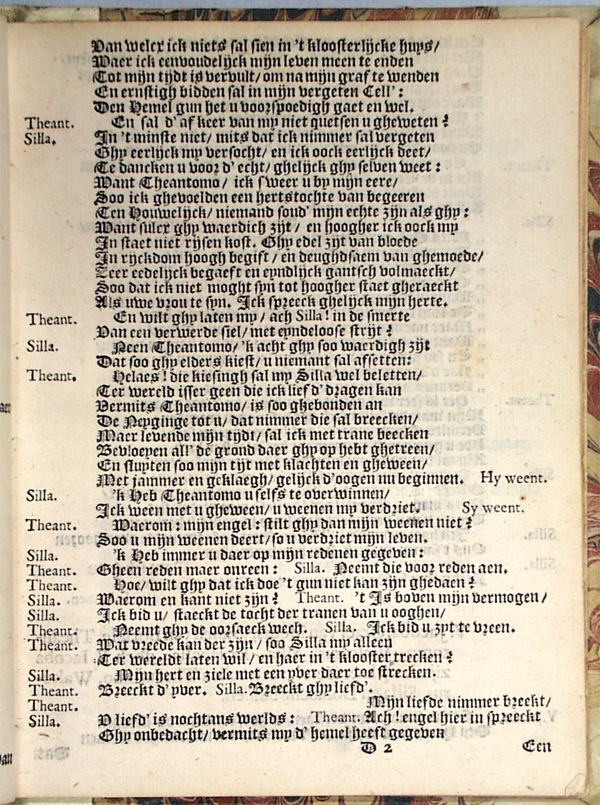 Van welcx ick niets sal sien in 't kloosterlijcke huys/
Waer ick eenvoudelijck mijn leven meen te enden
Tot mijn tijdt is vervult/ om na mijn graf te wenden
En ernstigh bidden sal in mijn vergeten Cell':
Den Hemel gun het u voorspoedigh gaet en wel.
Theant. En sal d'af keer van my niet quetsen u gheweten?
Silla. In 't minste niet/ mits dat ick nimmer sal vergeten
Ghy eerlijck my versocht/ en ick oock eerlijck deet/
Te dancken u voor d'echt/ ghelijck ghy selven weet:
Want Theantomo/ ick sweer u by mijn eere/
Soo ick ghevoelden een hertstochte van begeeren
Ten Houwelijck/ niemand soud' mijn echte zijn als ghy:
Want sulcx ghy waerdich zijt/ en hoogher ick oock my
In staet niet rijsen kost. Ghy edel zijt van bloede
In ryckdom hoogh begift/ en deughdsaem van ghemoede/
Zeer eedelijck begaeft en eyndlijck gantsch volmaeckt/
Soo dat ick niet moght syn tot hoogher staet gheraeckt
Als uwe vrou te syn. Ick spreeck ghelijck mijn herte.
Theant. En wilt ghy laten my/ ach Silla! in de smerte
Van een verwerde siel/ met eyndeloose strijt?
Silla. Neen Theantomo/ 'k acht ghy soo waerdigh zijt
Dat soo ghy elders kiest/ u niemant sal affetten:
Theant. Helaes! die kiesingh sal my Silla wel beletten/
Ter wereld isser geen die ick lief d'dragen kan
Vermits Theantomo/ is soo ghebonden an
De Neyginge tot u/ dat nimmer die sal breecken/
Maer levende mijn tijdt/ sal ick met trane beecken
Bevloeyen all' de grond daer ghy op hebt ghetreen/
En sluyten soo mijn tijt met klachten en gheween/
Met jammer en geklaegh/ gelijck d'oogen nu beginnen. Hy weent.
Silla. 'k Heb Theantomo u selfs te overwinnen/
Ick ween met u gheween/ u weenen my verdriet. Sy weent.
Theant. Waerom: mijn engel: stilt ghy dan mijn weenen niet?
Soo u mijn weenen deert/ so u verdriet mijn leven.
Silla. 'k Heb immer u daer op mijn redenen gegeven:
Theant. Gheen reden maer onreen: Silla. Neemt die voor reden aen.
Theant. Hoe/ wilt ghy dat ick doe 't gun niet kan zijn ghedaen?
Silla. Waerom en kant niet zijn? Theant. 't Is boven mijn vermogen/
Silla. Ick bid u/ staeckt de tocht der tranen van u ooghen/
Theant. Neemt ghy de oorsaeck wech. Silla. Ick bid u zyt te vreen.
Theant. Wat vreede kan der zijn/ soo Silla my alleen
Ter wereldt laten wil/ en haer in 't klooster trecken?
Silla. Mijn hert en ziele met een yver daer toe strecken.
Theant. Breeckt d'yver. Silla. Breeckt ghy liefd'.
Theant. Mijn liefde nimmer breeckt/
Silla. U liefd' is nochtans werlds: Theant. Ach! engel hier in spreeckt
Ghy onbedacht/ vermits my d'hemel heeft gegeven
D 2 Een